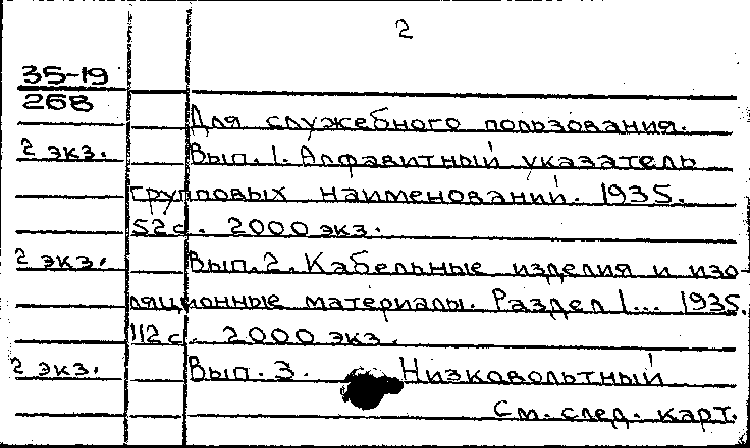 2
35-19
268
Для служебного пользования.
2 экз. Вып. 1. Алфавитный указатель
групповых наименований. 1935.
52 с. 2000 экз.
2 экз. Вып. 2. Кабельные изделия и изо-
ляционные материалы. Раздел 1... 1935.
112 с. 2000 экз.
2 экз. Вып. 3. Низковольтный
См. след. карт.